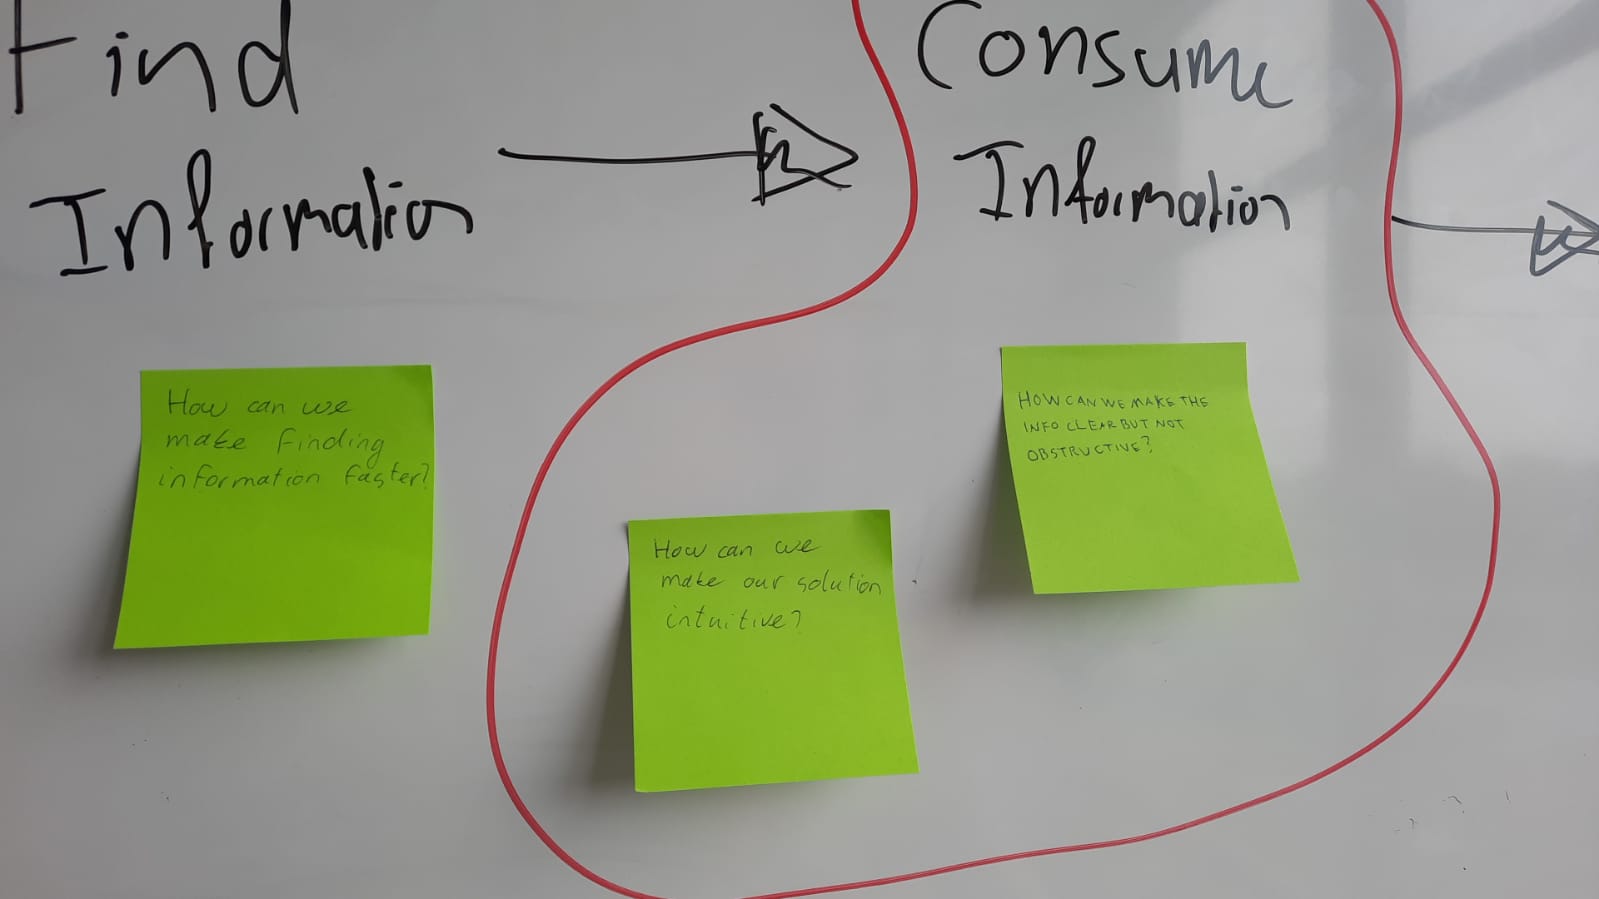 Find
Information
Consume
Information
How can we
make finding
information faster?
How can we
make our solution
intuitive?
HOW CAN WE MAKE THE
INFO CLEAR BUT NOT
OBSTRUCTIVE?